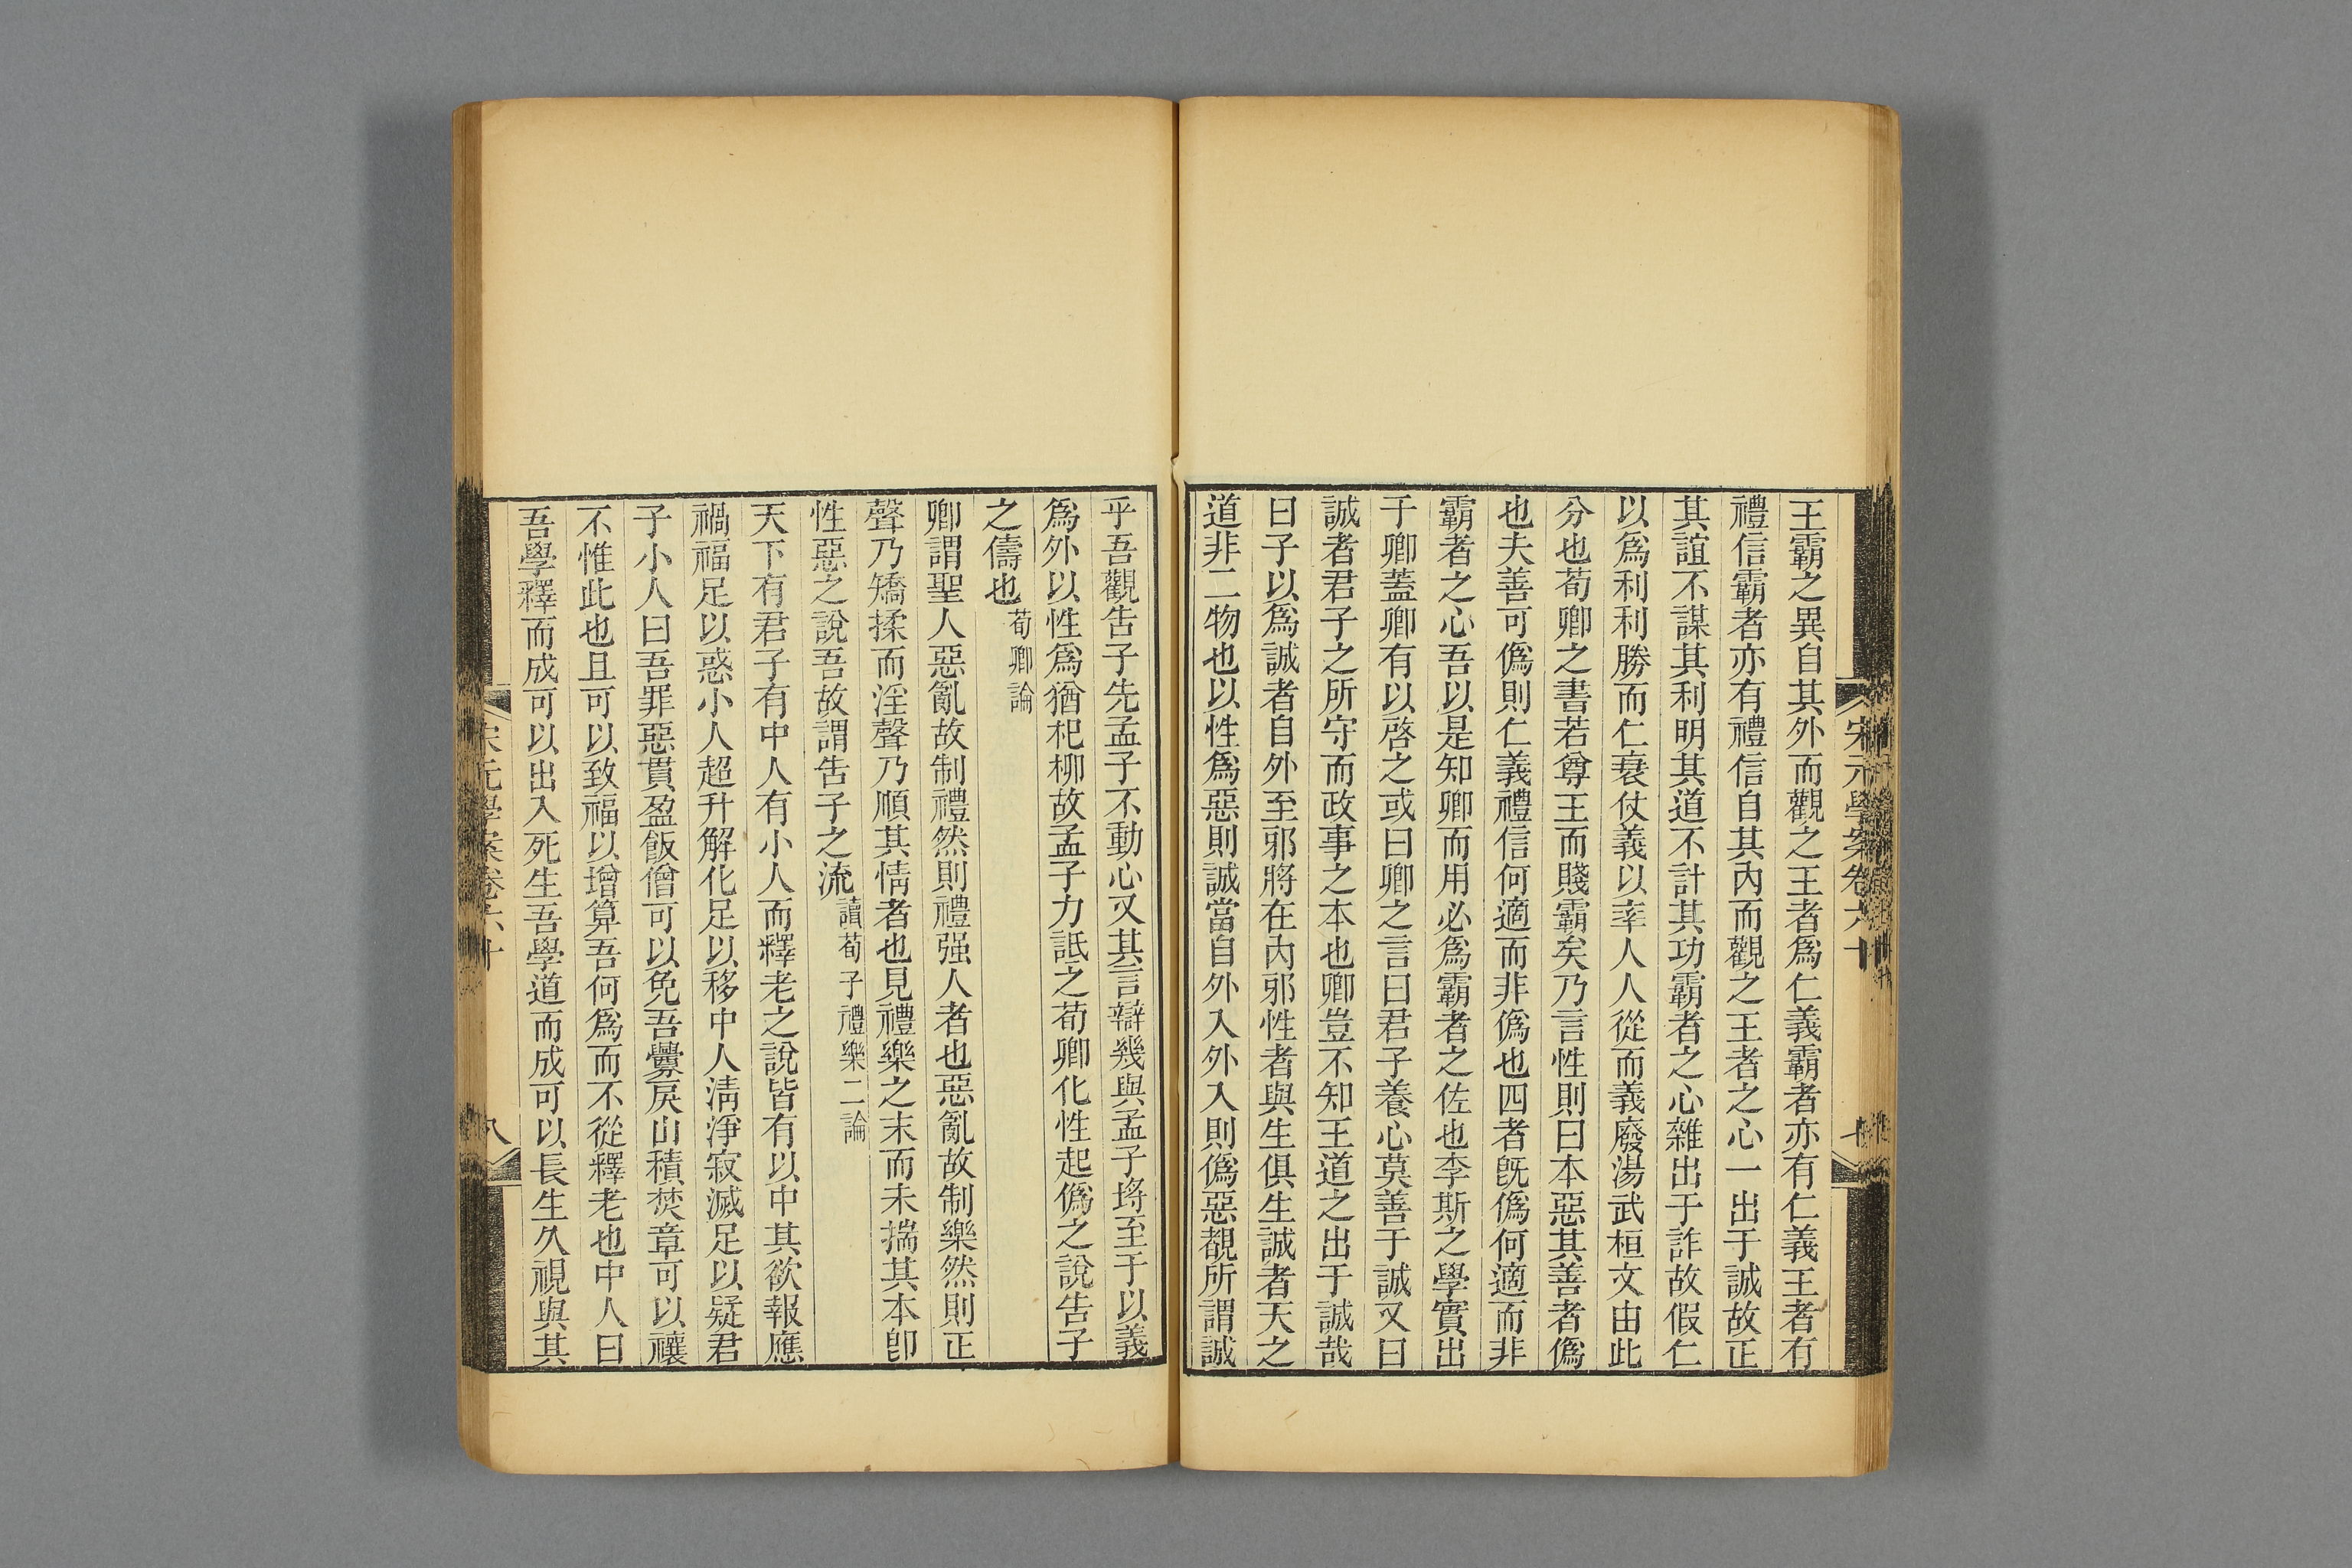 宋元學案卷六十
七
王霸之異自其外而觀之王者爲仁義霸者亦有仁義王者有
禮信霸者亦有禮信自其內而觀之王者之心一出于誠故正
其誼不謀其利明其道不計其功霸者之心雜出于詐故假仁
以爲利利勝而仁衰仗義以率人人從而義廢湯武桓文由此
分也荀卿之書若尊王而賤霸矣乃言性則曰本惡其善者僞
也夫善可僞則仁義禮信何適而非僞也四者旣僞何適而非
霸者之心吾以是知卿而用必爲霸者之佐也李斯之學實出
于卿蓋卿有以啓之或曰卿之言曰君子養心莫善于誠又曰
誠者君子之所守而政事之本也卿豈不知王道之出于誠哉
曰子以爲誠者自外至邪將在內邪性者與生俱生誠者天之
道非二物也以性爲惡則誠當自外入外入則僞惡覩所謂誠
乎吾觀告子先孟子不動心又其言辯幾與孟子埒至于以義
爲外以性爲猶杞柳故孟子力詆之荀卿化性起僞之說告子
之儔也荀卿論
卿謂聖人惡亂故制禮然則禮强人者也惡亂故制樂然則正
聲乃矯揉而淫聲乃順其情者也見禮樂之末而未揣其本卽
性惡之說吾故謂告子之流讀荀子禮樂二論
天下有君子有中人有小人而釋老之說皆有以中其欲報應
禍福足以惑小人超升解化足以移中人淸淨寂滅足以疑君
子小人曰吾罪惡貫盈飯僧可以免吾釁戾山積焚章可以禳
不惟此也且可以致福以增算吾何爲而不從釋老也中人曰
吾學釋而成可以出入死生吾學道而成可以長生久視與其
宋元學案卷六十
八